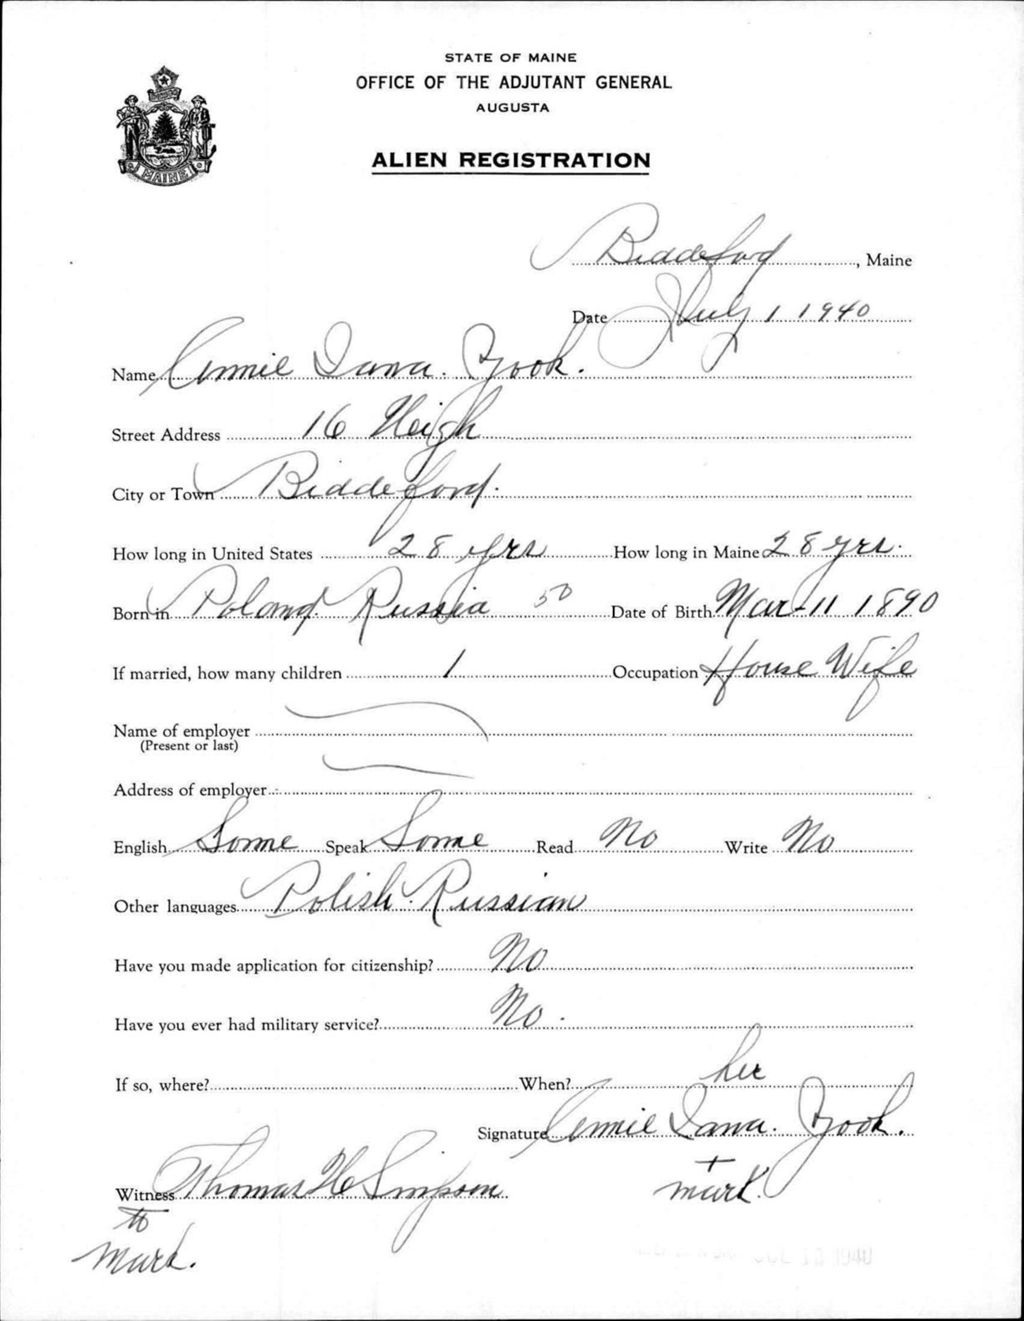 STATE OF MAINE
OFFICE OF THE ADJUTANT GENERAL
AUGUSTA
ALIEN REGISTRATION
MAINE
Biddeford, Maine
Date July 1 1940
Name Annie Dana. Yook.
Street Address 16 Heigh
City or Town Biddeford.
How long in United States 28 yrs How long in Maine 28 yrs.
Born in Poland Russia 50 Date of Birth Mar-11 1890
If married, how many children 1 Occupation House Wife
Name of employer
(Present or last)
Address of employer
English Some Speak Some Read No Write No
Other languages Polish. Russian
Have you made application for citizenship? No
Have you ever had military service? No.
If so, where? When?
her
Signature Annie Dana. Yook.
+
mark.
Witness Thomas H Simpson
to
mark.
1940